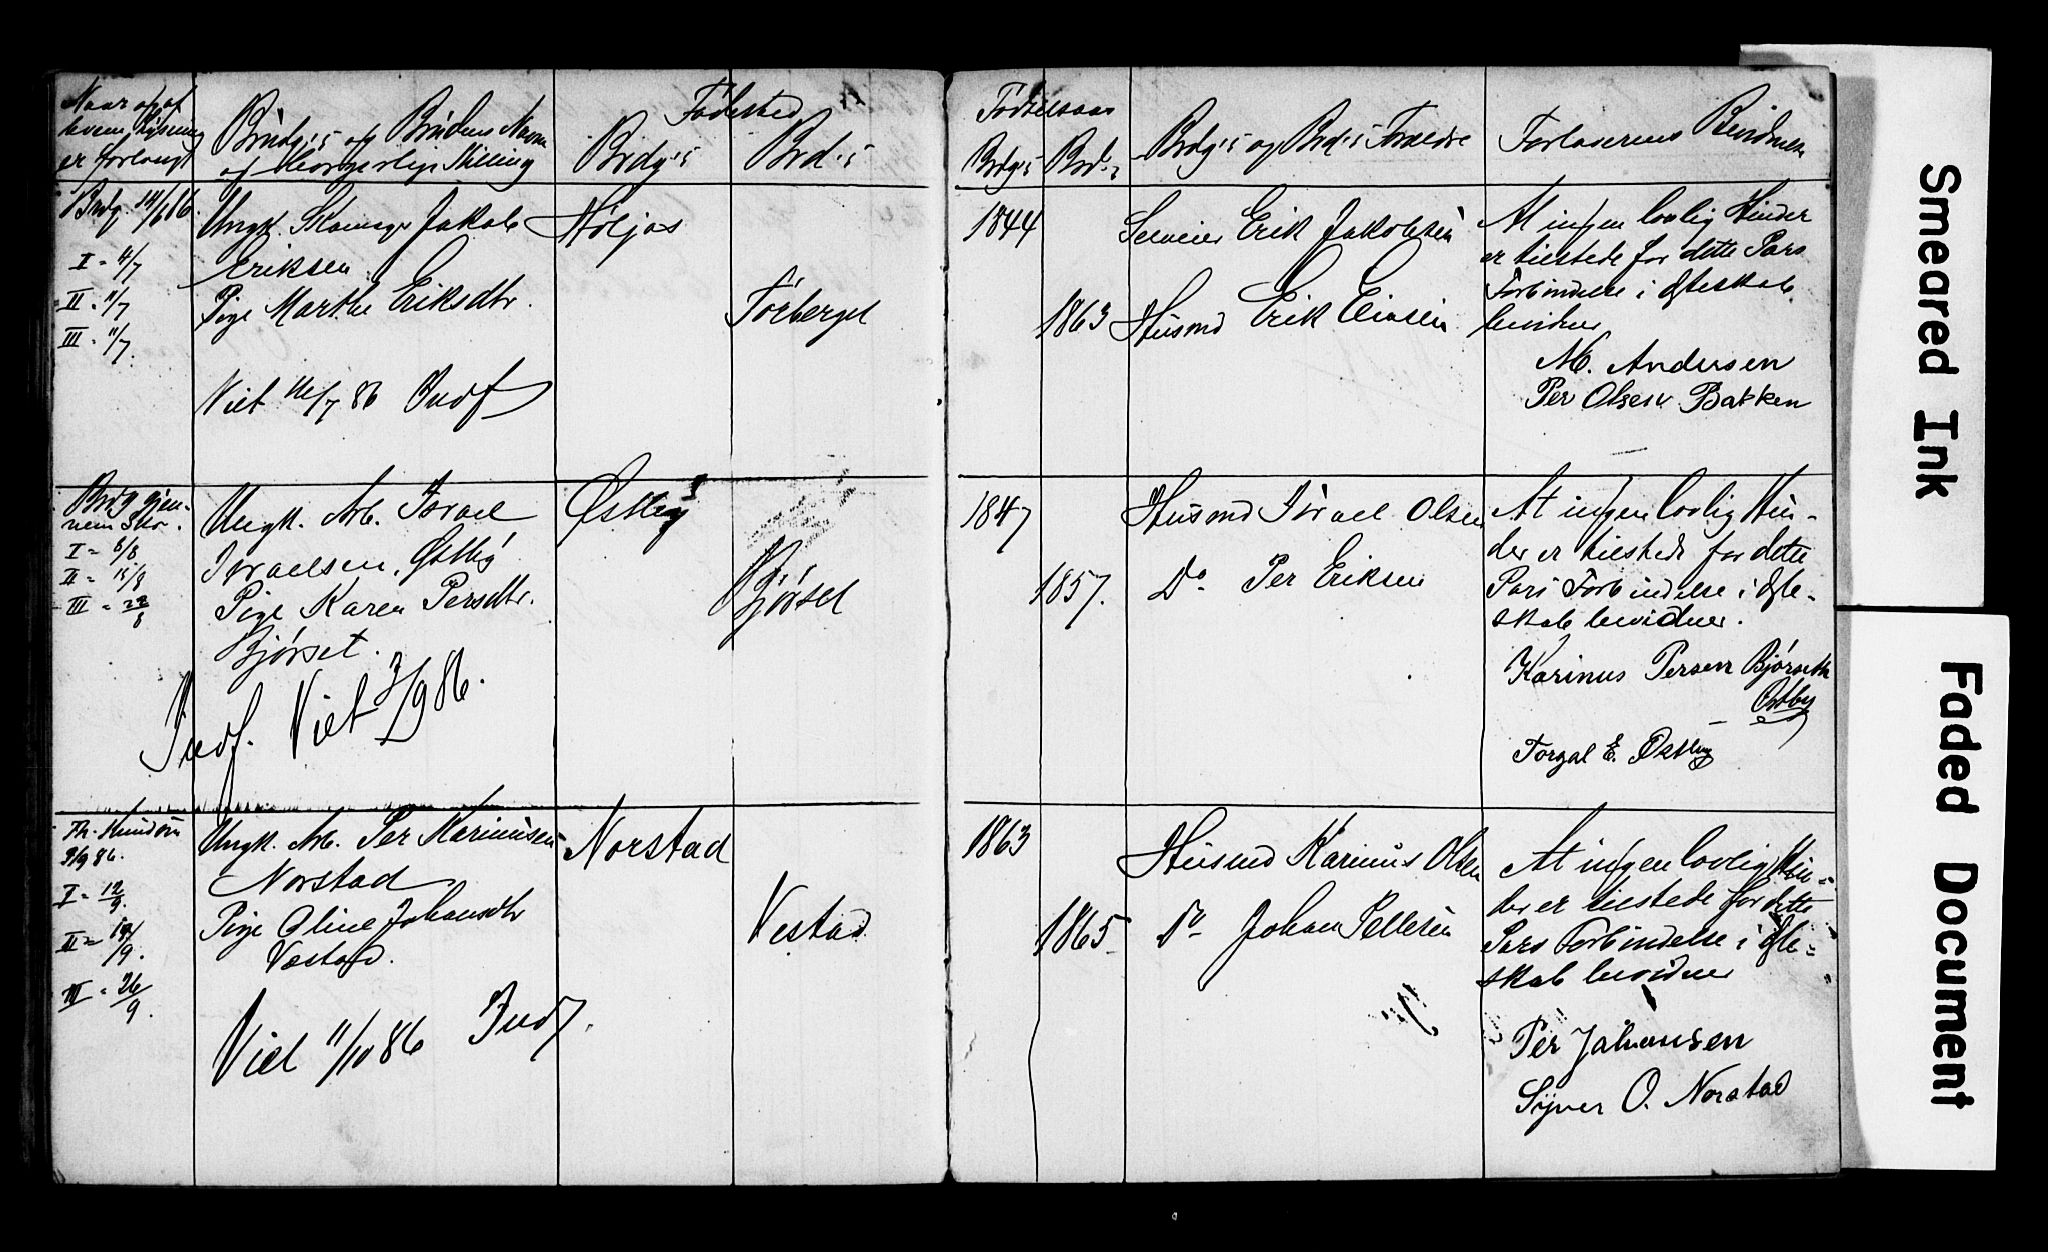 Naar og af
hvem Lysning
er forlangt
Brudg's og Brudens Navn
og borgerlige Stilling
Fødested
Brdg's
Brd's
Fødselsaar
Brdg's Brd's
Brdg's og Brd's Forældre
Forloverens Bevidnelse
Brdg. 14/6 86.
I = 4/7
II = 11/7
III = 11/7.
Ungk. Skomagr Jakob
Eriksen
Pige Marthe Eriksdtr.
Viet 16/7 86 Indf
Høljos
Førberget
1844
1863
Selveier Erik Jakobsen
Husmd Erik
At ingen lovlig Hinder
er tilstede for dette Pars
Forbindelse i Ægteskab
bevidner
M. Andersen
Per Olsen Bakken
Brdg gjen-
nem Skr.
I = 8/8
II = 15/8
III = 22/8
Ungk. Arb. Israel
Israelsen, Østby
Pige Karen Persdtr.
Bjørset.
Indf. Viet 3/9 86.
Østby
Bjørset
1847
1857.
Husmd Israel Olsen
Do Per Eriksen
At ingen lovlig Hin-
der er tilstede for dette
Pars Forbindelse i Ægte-
skab bevidner.
Karinus Persen Bjørseth
Østby
Torgal E. Østby
Th. Knudsen
3/9 86.
I = 12/9.
II = 19/9.
III = 26/9.
Ungk. Arb. Per Karinusen
Norstad
Pige Oline Johansdtr
Vestad.
Viet 11/10 86 Indf.
Norstad
Vestad
1863
1865
Husmd Karinus Olsen
Do Johan Pettersen
At ingen lovlig Hin-
der er tilstede for dette
Pars Forbindelse i Ægte-
skab bevidner
Per Johansen
Syver O. Norstad
Smeared Ink
Faded Document